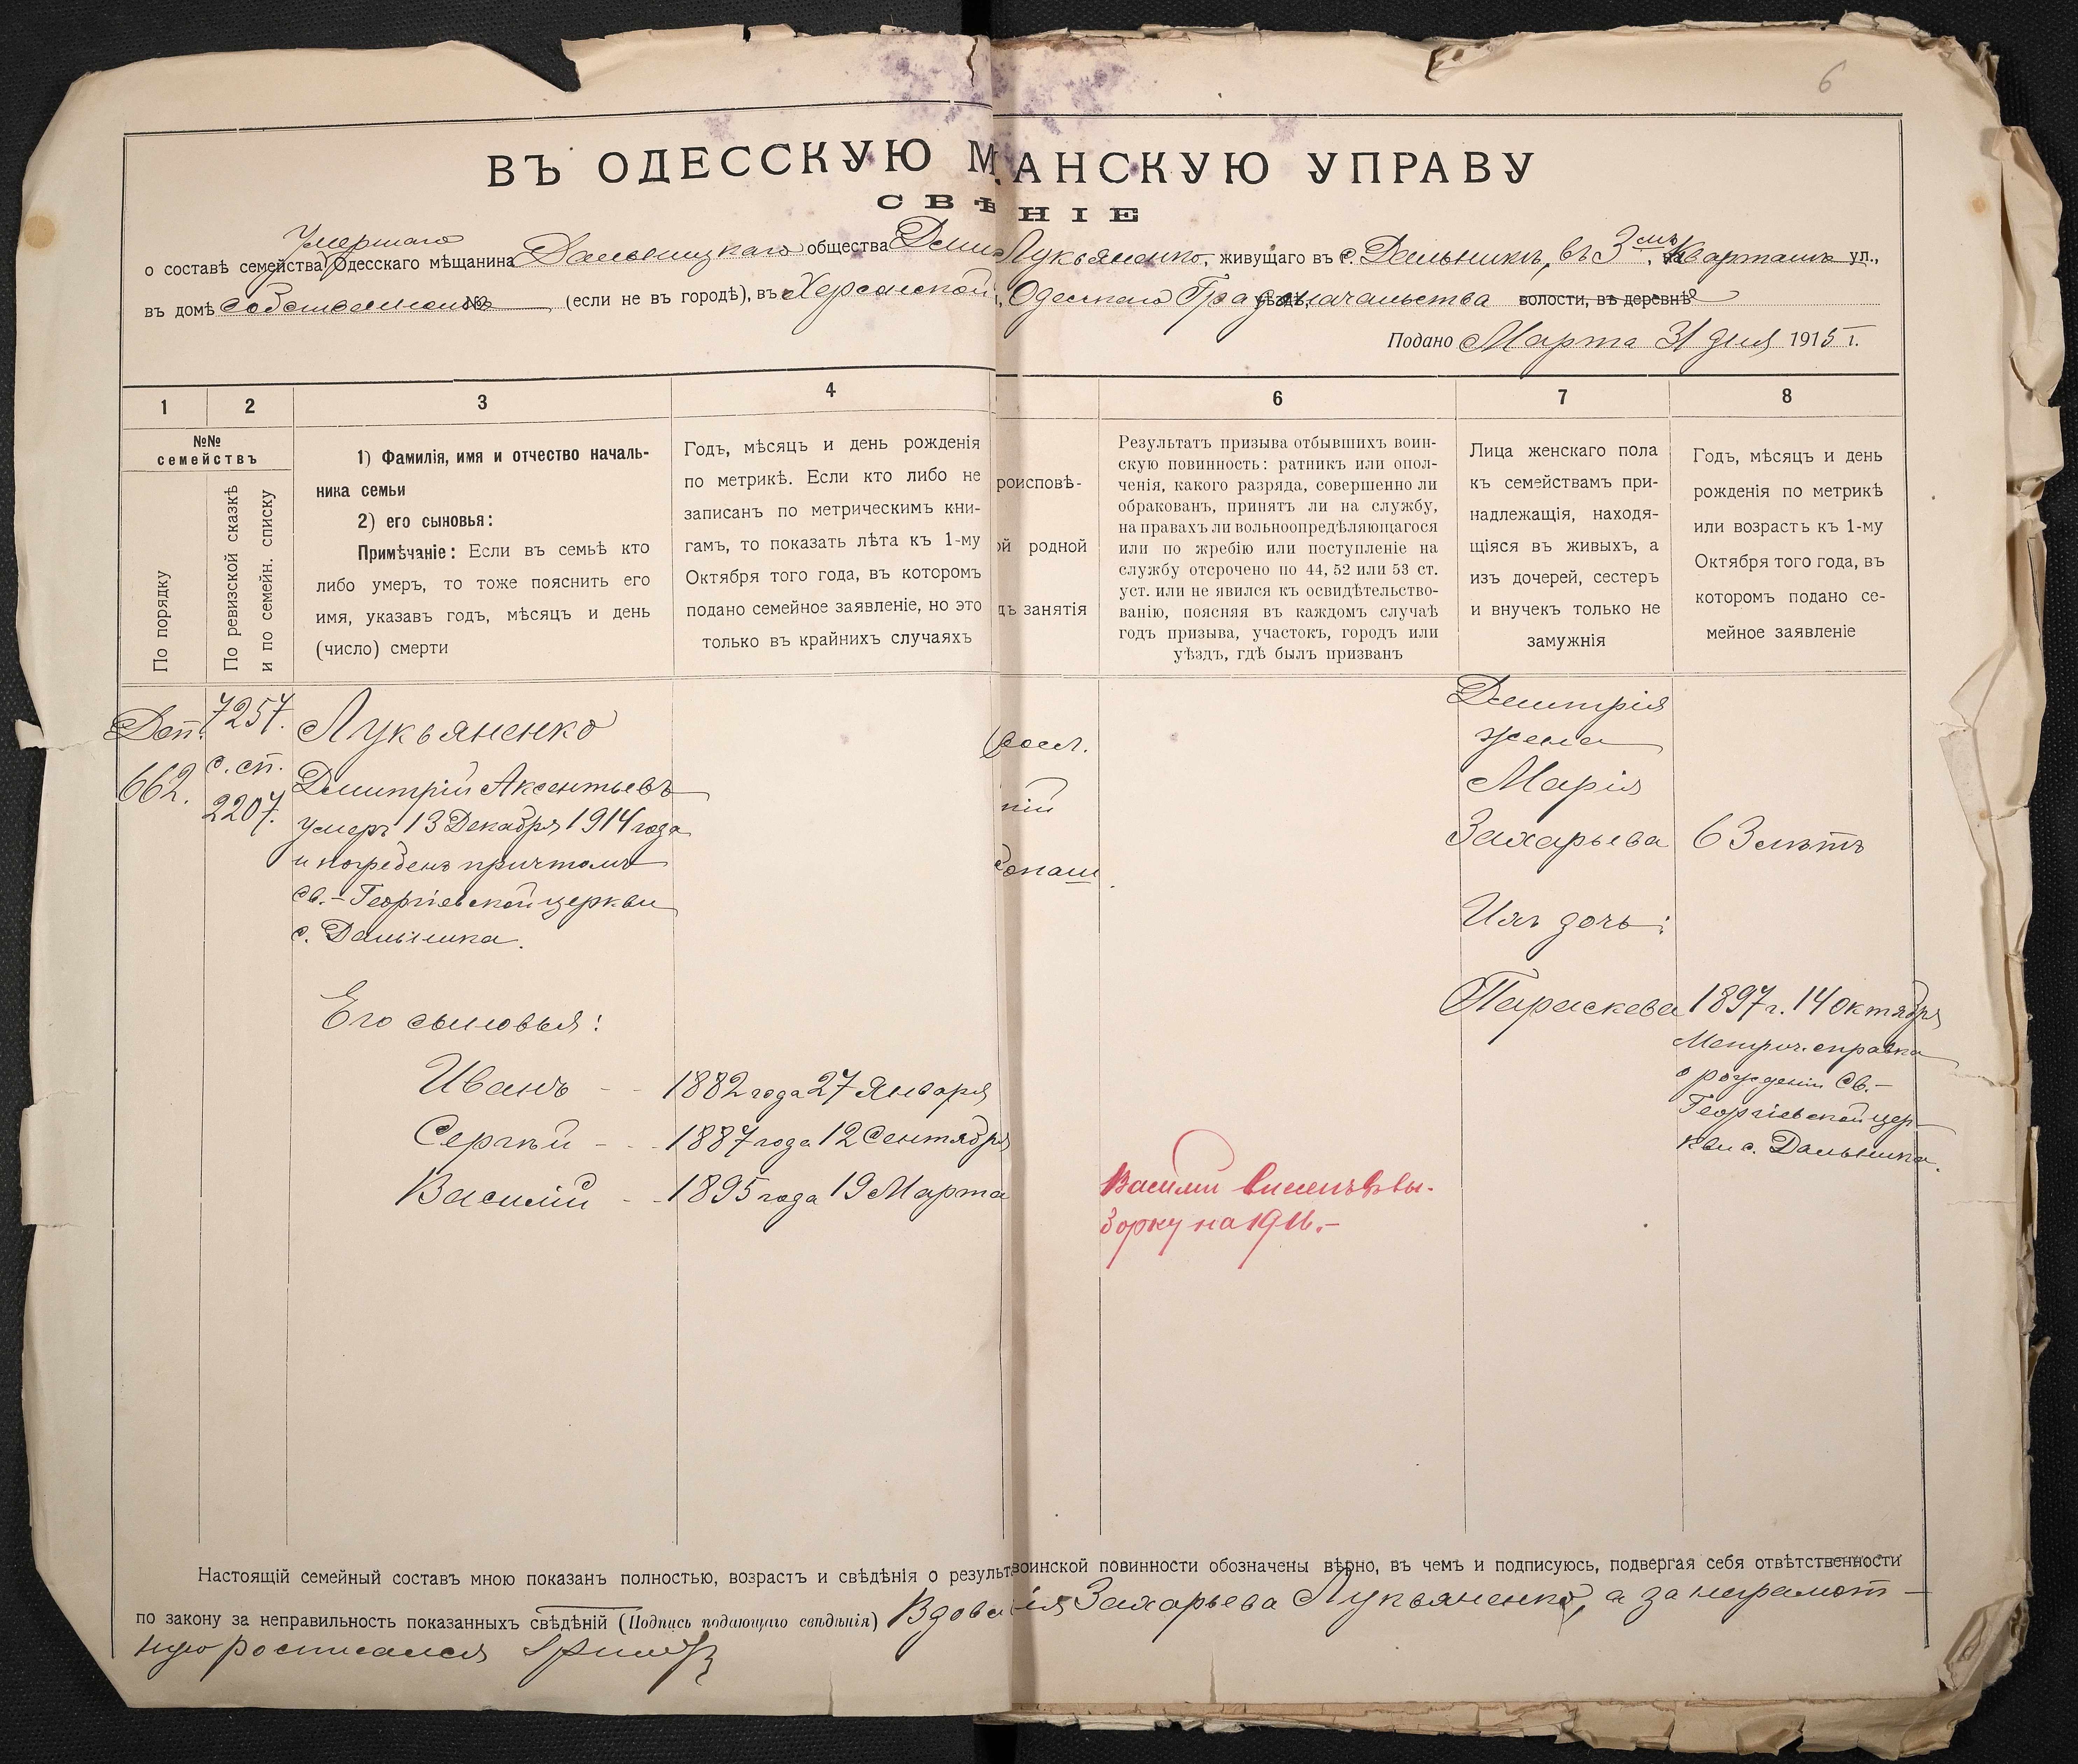 6
ВЪ ОДЕССКУЮ М АНСКУЮ УПРАВУ
СВѢ НІЕ
Умершаго
о составѣ семейства Одесскаго мѣщанина Дальницкаго общества Дми Лукьяненко, живущаго въ с. Дальникѣ, въ 3мъ Кварталѣ ул.,
въ домѣ собственномъ № (если не въ городѣ), въ Херсонской, Одесскаго Градоначальства уѣздѣ, волости, въ деревнѣ
Подано Марта 31 дня 1915 г.
1 2 3 4 6 7 8
№№ семействъ
По порядку
По ревизской сказкѣ и по семейн. списку
1) Фамилія, имя и отчество началь-
ника семьи
2) его сыновья:
Примѣчаніе: Если въ семьѣ кто
либо умеръ, то тоже пояснить его
имя, указавъ годъ, мѣсяцъ и день
(число) смерти
Годъ, мѣсяцъ и день рожденія
по метрикѣ. Если кто либо не
записанъ по метрическимъ кни-
гамъ, то показать лѣта къ 1-му
Октября того года, въ которомъ
подано семейное заявленіе, но это
только въ крайнихъ случаяхъ
роисповѣ-
ой родной
дъ занятія
Результатъ призыва отбывшихъ воин-
скую повинность: ратникъ или опол-
ченія, какого разряда, совершенно ли
обракованъ, принятъ ли на службу,
на правахъ ли вольноопредѣляющагося
или по жребію или поступленіе на
службу отсрочено по 44, 52 или 53 ст.
уст. или не явился къ освидѣтельство-
ванію, поясняя въ каждомъ случаѣ
годъ призыва, участокъ, городъ или
уѣздъ, гдѣ былъ призванъ
Лица женскаго пола
къ семействамъ при-
надлежащія, находя-
щіяся въ живыхъ, а
изъ дочерей, сестеръ
и внучекъ только не
замужнія
Годъ, мѣсяцъ и день
рожденія по метрикѣ
или возрастъ къ 1-му
Октября того года, въ
которомъ подано се-
мейное заявленіе
Доп.
662.
7257.
с. сп.
2207.
Лукьяненко
Дмитрій Аксентьевъ
умеръ 13 Декабря 1914 года
и погребенъ причтомъ
Св.-Георгіевской церкви
с. Дальника.
Его сыновья:
Иванъ - - 1882 года 27 Января
Сергѣй - - 1887 года 12 Сентября
Василій - - 1895 года 19 Марта
восл.
кій
Василій внесенъ въ вы-
борку на 1916.-
Дмитрія
жена
Марія
Захарьева 63 лѣтъ
Ихъ дочь:
Параскева 1897 г. 14 Октября
Метрич. справка
о рожденіи Св.-
Георгіевской цер-
кви с. Дальника.
Настоящій семейный составъ мною показанъ полностью, возрастъ и свѣдѣнія о результ воинской повинности обозначены вѣрно, въ чемъ и подписуюсь, подвергая себя отвѣтственности
по закону за неправильность показанныхъ свѣдѣній (Подпись подающаго свѣдѣнія) Вдова ія Захарьева Лукьяненко, а за неграмот-
ную росписался